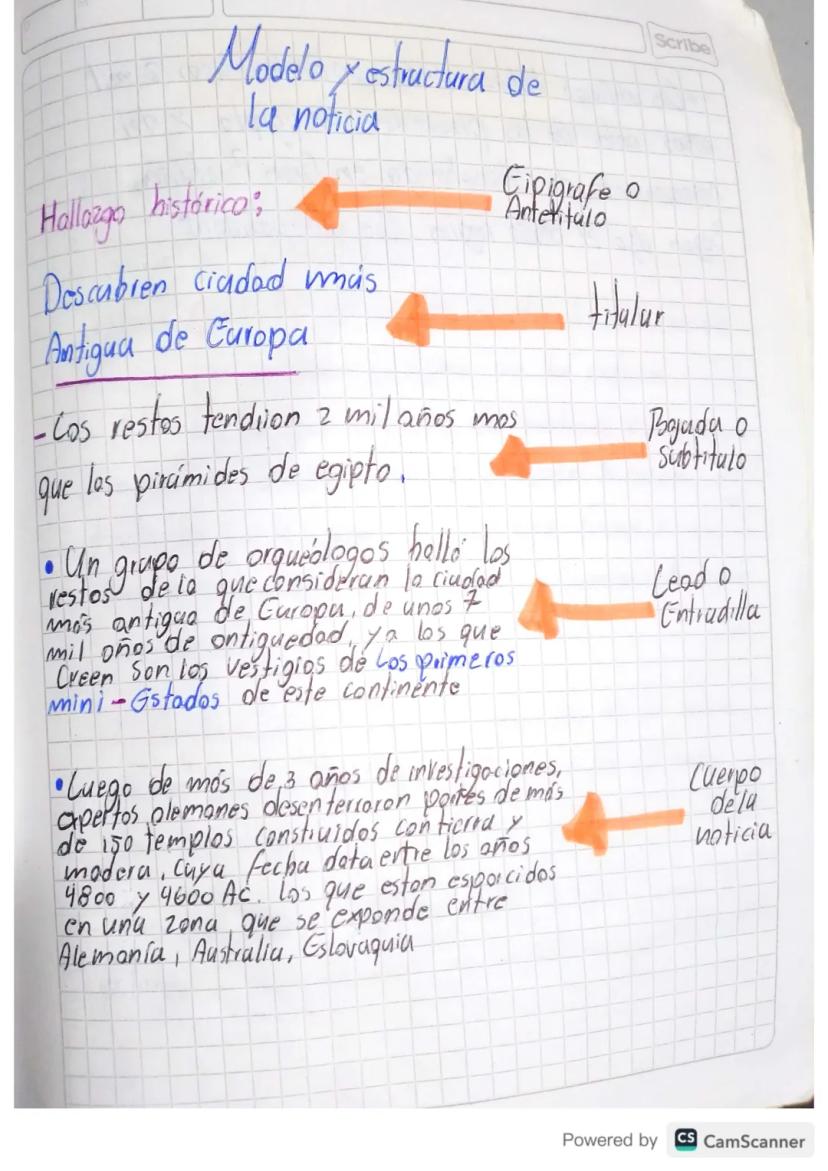 Scribe
Modelo y estructura de
la noticia
Hallazgo histórico:
Eipigrafe o
Antetitulo
Descubren ciudad más
Antigua de Europa
titular
- Los restos tendiion 2 mil años mas
que las pirámides de egipto.
Bajada o
Subtitulo
• Un grupo de arqueólogos halló los
restos de la que consideran la ciudad
más antigua de Europa, de unos 7
mil años de antiguedad, ya los que
Creen son los vestigios de los primeros
mini - Estados de este continente
Lead o
Entradilla
• Luego de más de 3 años de investigaciones,
apertos alemanes desenterraron partes de más
de 150 templos construidos con tierra y
madera, Cuya fecha data entre los años
4800 y 4600 AC. los que estan esparcidos
en una zona que se expande entre
Alemanía, Australia, Eslovaquia
Cuerpo
dela
noticia
Powered by CS CamScanner